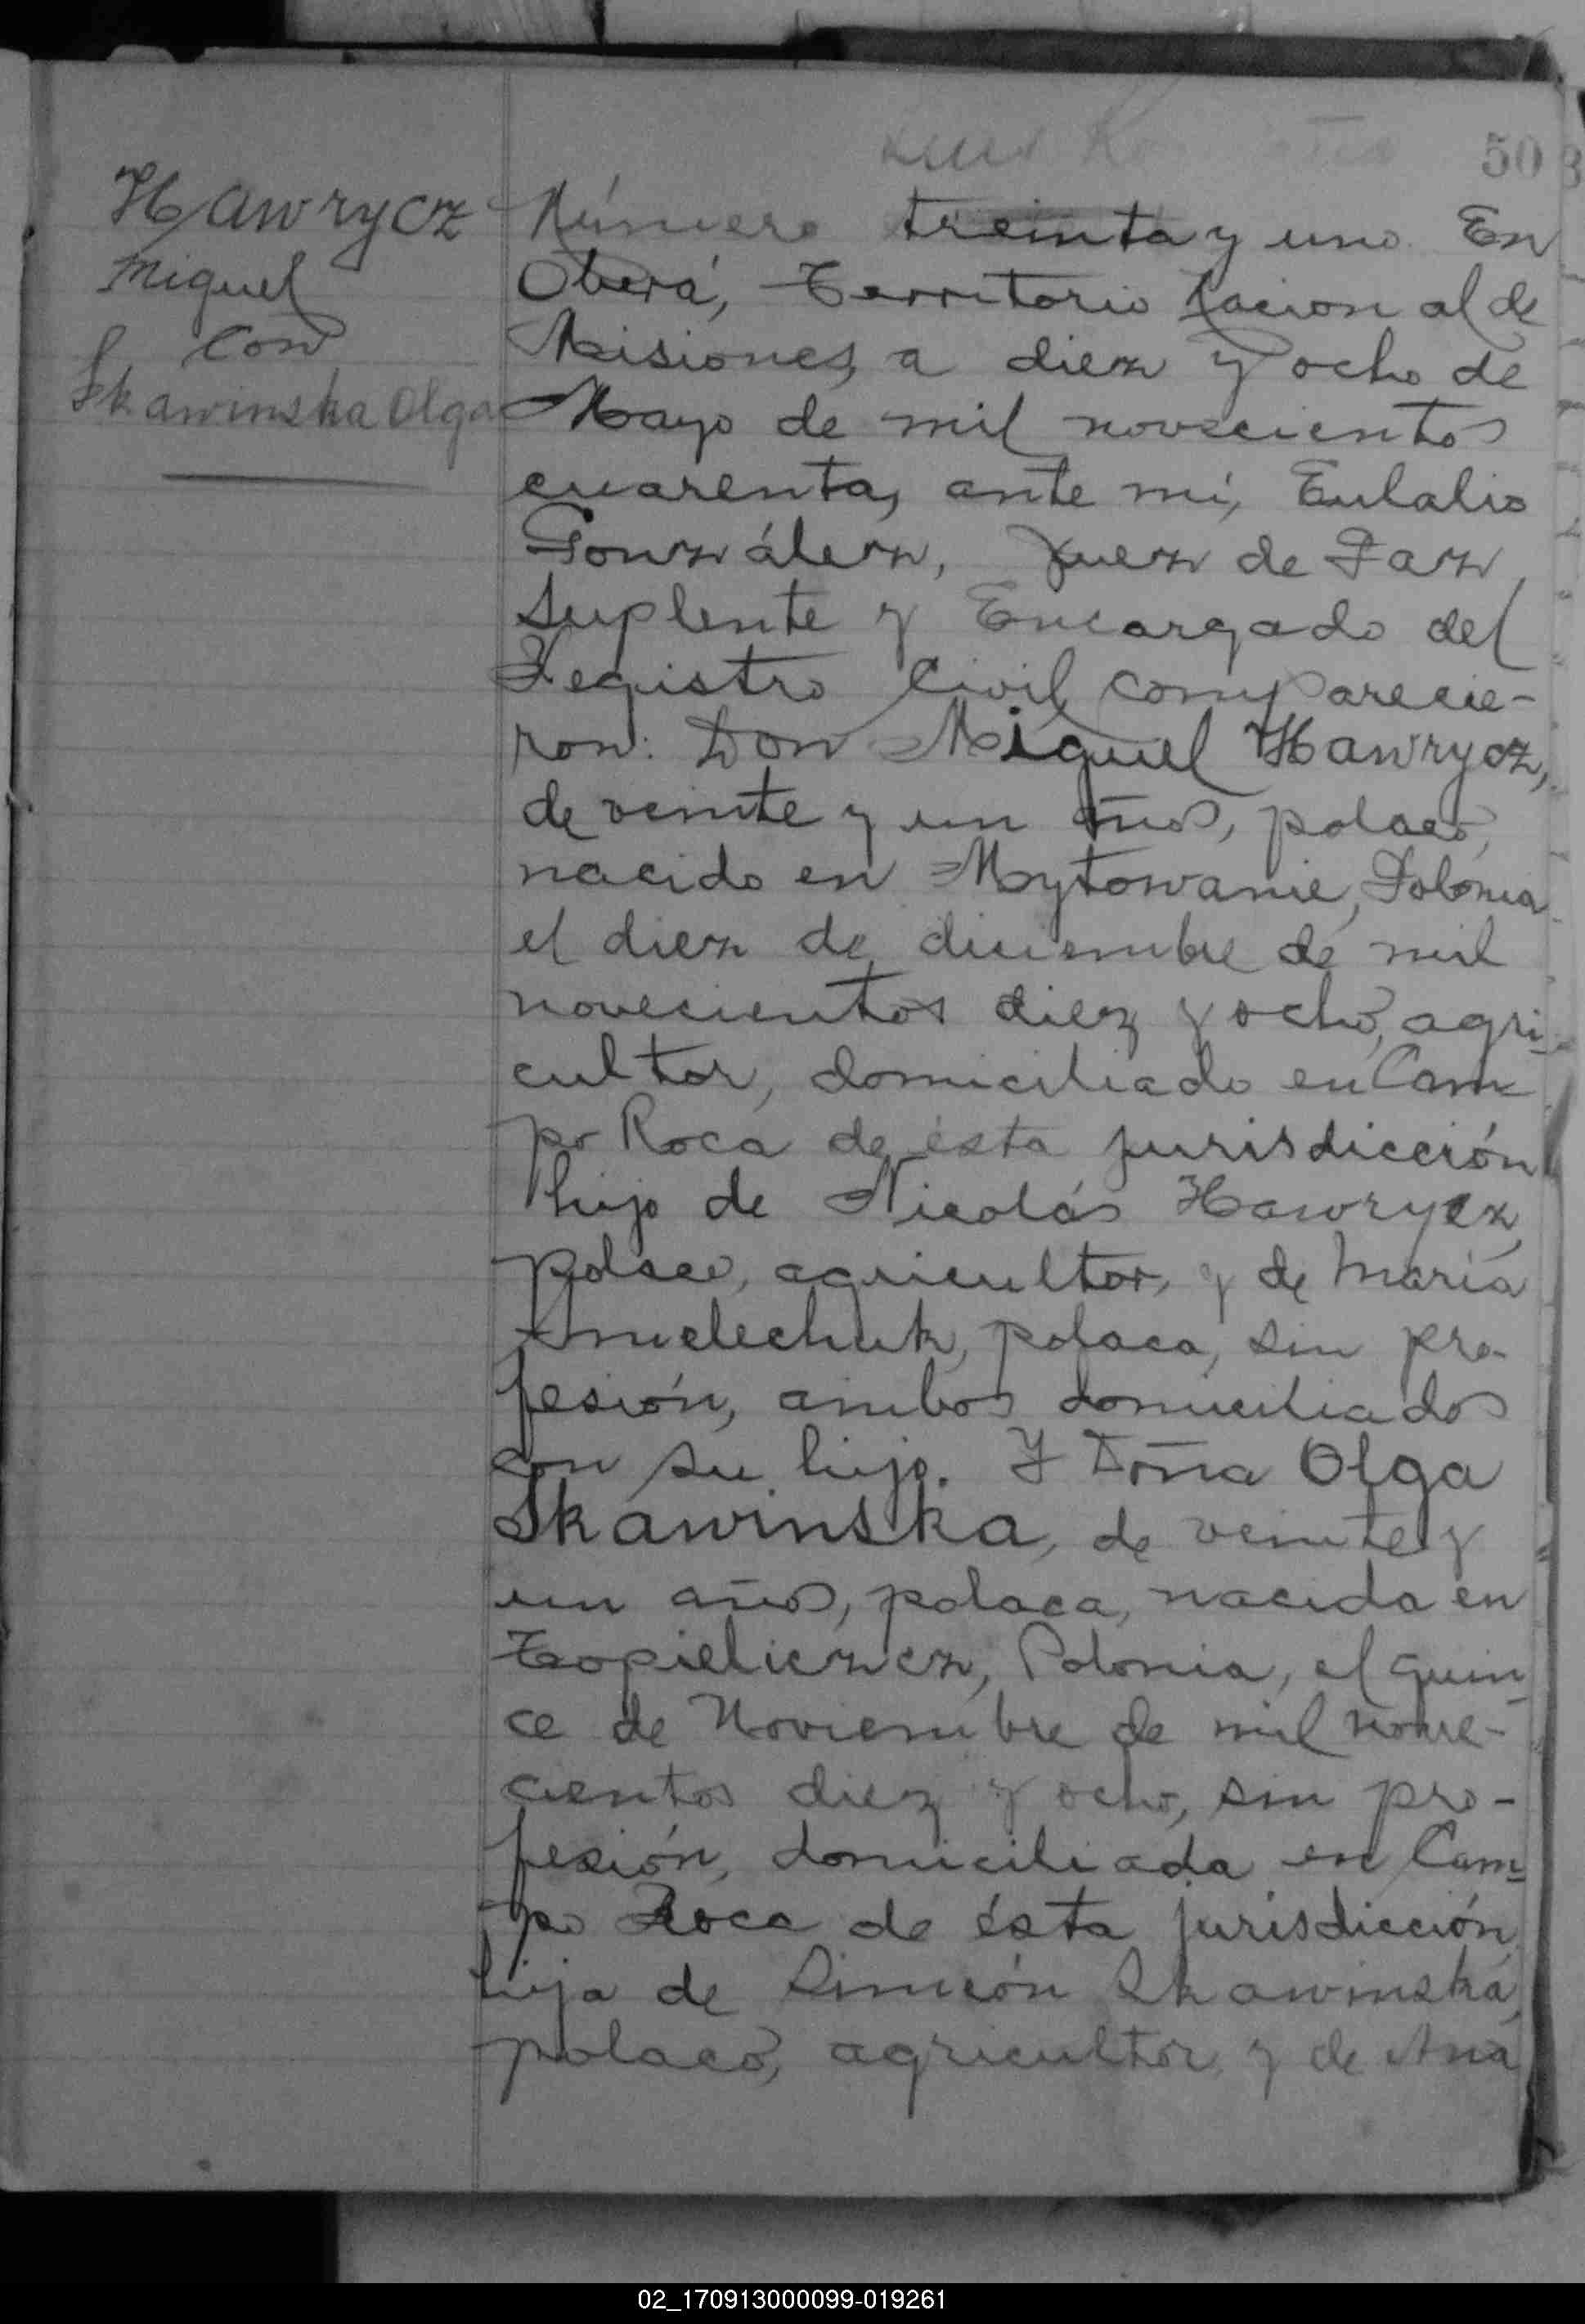 50
Hawrycz
Miguel
Con
Skawinska Olga
Número treinta y uno. En
Oberá, Territorio Nacional de
Misiones, a diez y ocho de
Mayo de mil novecientos
cuarenta, ante mí, Eulalio
González, Juez de Paz
Suplente y Encargado del
Registro Civil, comparecie-
ron: Don Miguel Hawrycz,
de veinte y un años, polaco,
nacido en Mytowanie, Polonia
el diez de diciembre de mil
novecientos diez y ocho, agri-
cultor, domiciliado en Cam-
po Roca de ésta jurisdicción
hijo de Nicolás Hawrycz,
polaco, agricultor, y de María
polaca, sin pro-
fesión, ambos domiciliados
con su hijo. Y Doña Olga
Skawinska, de veinte y
un años, polaca, nacida en
Polonia, el quin-
ce de Noviembre de mil nove-
cientos diez y ocho, sin pro-
fesión, domiciliada en Cam-
po Roca de ésta jurisdicción,
hija de Simeón Skawinska,
polaco, agricultor y de Ana
02_170913000099-019261